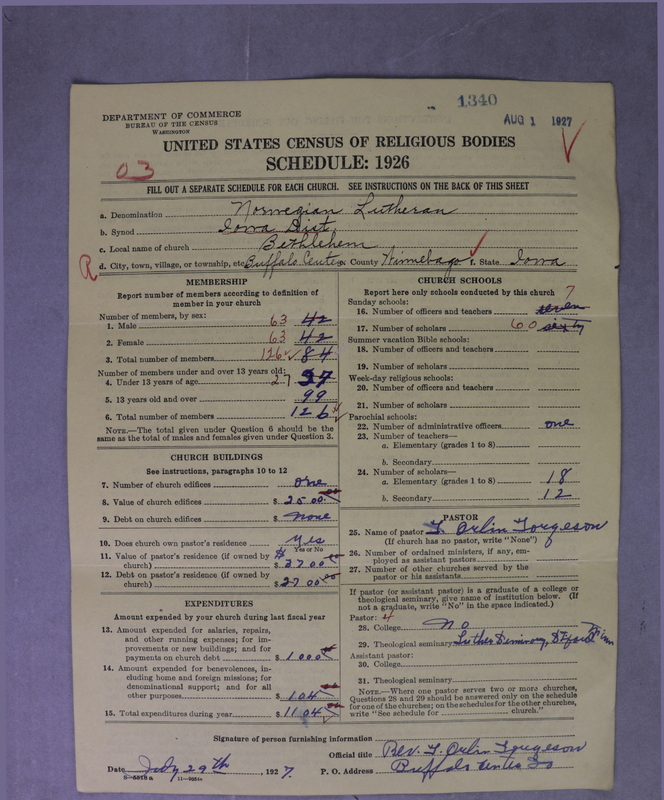 1340
AUG 1 1927
DEPARTMENT OF COMMERCE
BUREAU OF THE CENSUS
WASHINGTON
UNITED STATES CENSUS OF RELIGIOUS BODIES
SCHEDULE: 1926
03
FILL OUT A SEPARATE SCHEDULE FOR EACH CHURCH. SEE INSTRUCTIONS ON THE BACK OF THIS SHEET
a. Denomination Norwegian Lutheran
b. Synod Iowa Dist.
c. Local name of church Bethlehem
R d. City, town, village, or township, etc. Buffalo Center e. County Winnebago f. State Iowa
MEMBERSHIP
Report number of members according to definition of member in your church
Number of members, by sex:
1. Male 63 42
2. Female 63 42
3. Total number of members 126 84
Number of members under and over 13 years old:
4. Under 13 years of age 27 37
5. 13 years old and over 99
6. Total number of members 126
NOTE.—The total given under Question 6 should be the same as the total of males and females given under Question 3.
CHURCH BUILDINGS
See instructions, paragraphs 10 to 12
7. Number of church edifices one
8. Value of church edifices $ 2500
9. Debt on church edifices $ none
10. Does church own pastor's residence yes
Yes or No
11. Value of pastor's residence (if owned by church) $ 3700
12. Debt on pastor's residence (if owned by church) $ 2700
EXPENDITURES
Amount expended by your church during last fiscal year
13. Amount expended for salaries, repairs, and other running expenses; for improvements or new buildings; and for payments on church debt $ 1000
14. Amount expended for benevolences, including home and foreign missions; for denominational support; and for all other purposes $ 104
15. Total expenditures during year $ 1104
CHURCH SCHOOLS
Report here only schools conducted by this church
Sunday schools:
16. Number of officers and teachers 7 seven
17. Number of scholars 60 sixty
Summer vacation Bible schools:
18. Number of officers and teachers
19. Number of scholars
Week-day religious schools:
20. Number of officers and teachers
21. Number of scholars
Parochial schools:
22. Number of administrative officers one
23. Number of teachers—
a. Elementary (grades 1 to 8)
b. Secondary
24. Number of scholars—
a. Elementary (grades 1 to 8) 18
b. Secondary 12
PASTOR
25. Name of pastor T. Orlin Torgeson
(If church has no pastor, write "None")
26. Number of ordained ministers, if any, employed as assistant pastors
27. Number of other churches served by the pastor or his assistants
If pastor (or assistant pastor) is a graduate of a college or theological seminary, give name of institution below. (If not a graduate, write "No" in the space indicated.)
Pastor: 4
28. College no
29. Theological seminary Luther Seminary, St. Paul Minn
Assistant pastor:
30. College
31. Theological seminary
NOTE.—Where one pastor serves two or more churches, Questions 28 and 29 should be answered only on the schedule for one of the churches; on the schedules for the other churches, write "See schedule for church."
Signature of person furnishing information
Official title Rev. T. Orlin Torgeson
Date July 29th, 1927. P. O. Address Buffalo Center Ia
8—5518 a 11—9084a